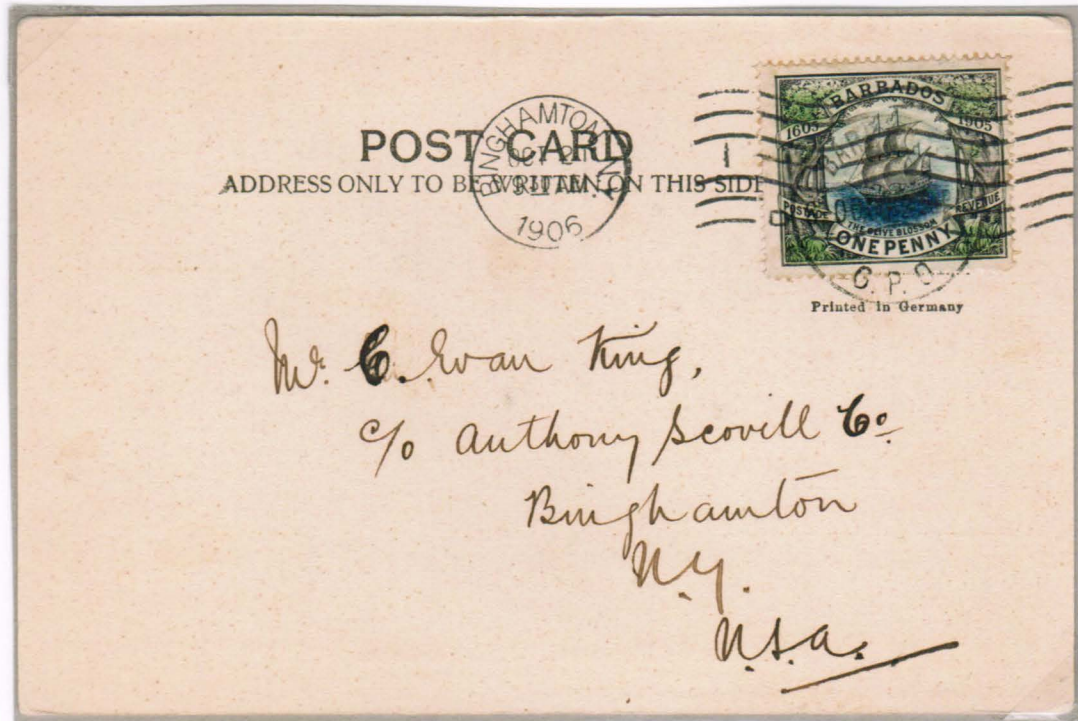 POST CARD
ADDRESS ONLY TO BE WRITTEN ON THIS SIDE
BINGHAMTON, N.Y.
OCT 21
9 30 AM
1906
1
BARBADOS
1605 1905
POSTAGE REVENUE
THE OLIVE BLOSSOM
ONE PENNY
G.P.O
Printed in Germany
Mr. C. Evan King,
c/o Anthony Scovill Co.
Binghamton
N.Y.
U.S.A.